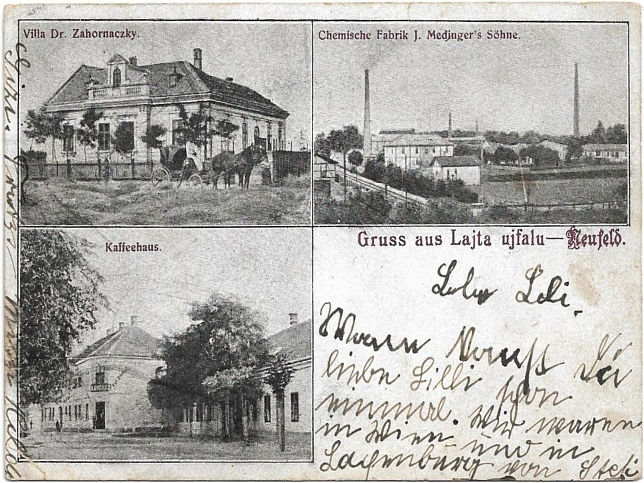 Villa Dr. Zahornaczky.
Chemische Fabrik J. Medinger's Söhne.
Kaffeehaus.
Gruss aus Lajta ujfalu—Neufeld.
Wann Du
liebe Lilli schon
einmal. Wir waren
in Wien und in
Laxenburg von Stefi